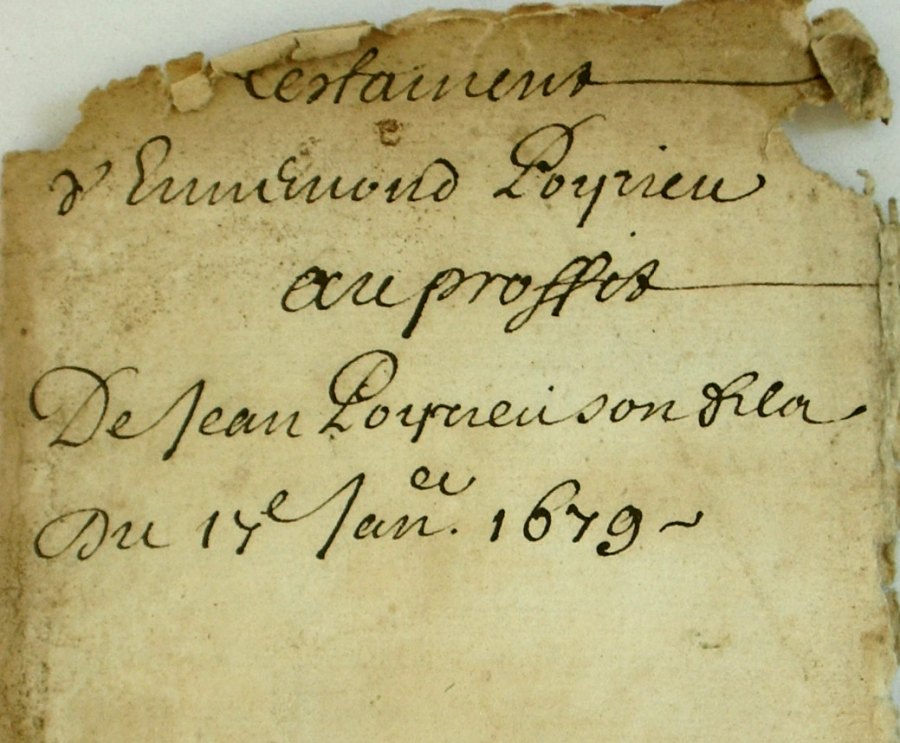 Testament
d'Ennemond Poyrieu
au proffit
De Jean Poyrieu son fils
Du 17e Janer. 1679